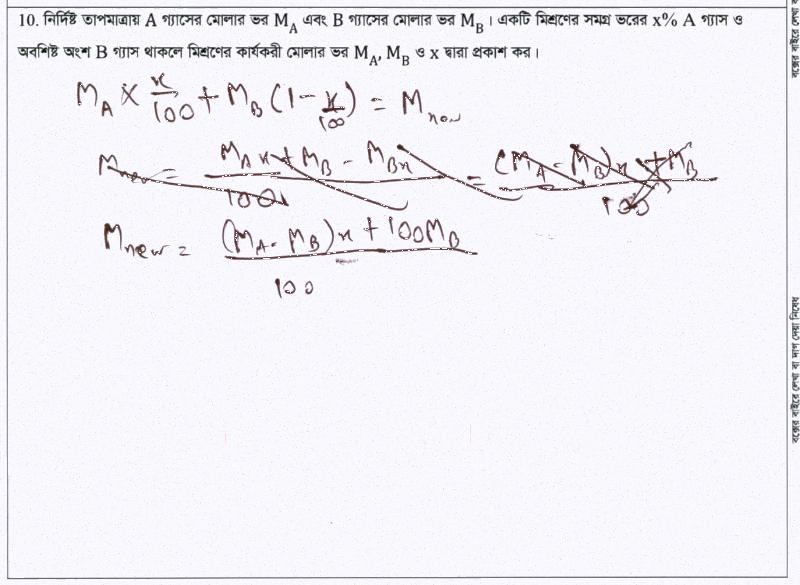 10. নির্দিষ্ট তাপমাত্রায় A গ্যাসের মোলার ভর M_A এবং B গ্যাসের মোলার ভর M_B। একটি মিশ্রণের সমগ্র ভরের x% A গ্যাস ও
অবশিষ্ট অংশ B গ্যাস থাকলে মিশ্রণের কার্যকরী মোলার ভর M_A, M_B ও x দ্বারা প্রকাশ কর।
M_A × x/100 + M_B (1 - x/100) = M_new
M_new = (M_A x + M_B - M_B x)/100 = ((M_A - M_B)x + M_B)/100
M_new = ((M_A - M_B)x + 100M_B)/100
বক্সের বাইরে লেখা বা দাগ দেয়া নিষেধ